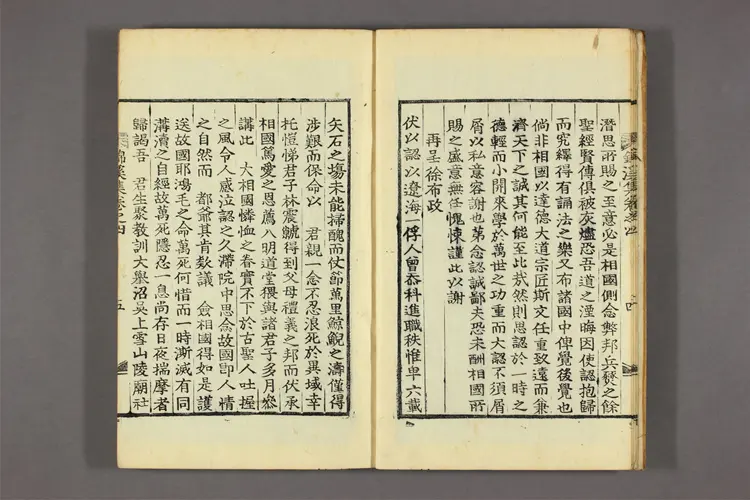 潛思所賜之至意必是相國側念弊邦兵燹之餘
聖經賢傳俱被灰燼恐吾道之湮晦因使認抱歸
而究繹得有誦法之樂又布諸國中俾覺後覺也
倘非相國以達德大道宗匠斯文任重致遠而兼
濟天下之誠其何能至此哉然則思認於一時之
德輕而小開來學於萬世之功重而大認不須屑
屑以私意容謝也第念認誠鄙夫恐未酬相國所
賜之盛意無任愧悚謹此以謝
再呈徐布政
伏以認以遼海一俘人曾忝科進職秩惟卑六載
矢石之場未能掃醜而仗節萬里鯨鯢之濤僅得
涉艱而保命以 君親一念不忍浪死於異域幸
托愷悌君子林震虩得到父母禮義之邦而伏承
相國篤愛之恩薦入明道堂猥與諸君子多月叅
講此 大相國憐恤之眷實不下於古聖人吐握
之風令人感泣認之久滯院中思念故國卽人情
之自然而 都爺其肯欸議 僉相國得如是護
送故國耶鴻毛之命萬死何惜而一時澌滅有同
溝瀆之自經故萬死隱忍一息尚存日夜揣摩者
歸謁吾 君生聚敎訓大舉沼吳上雪山陵廟社
錦溪集卷之四
五